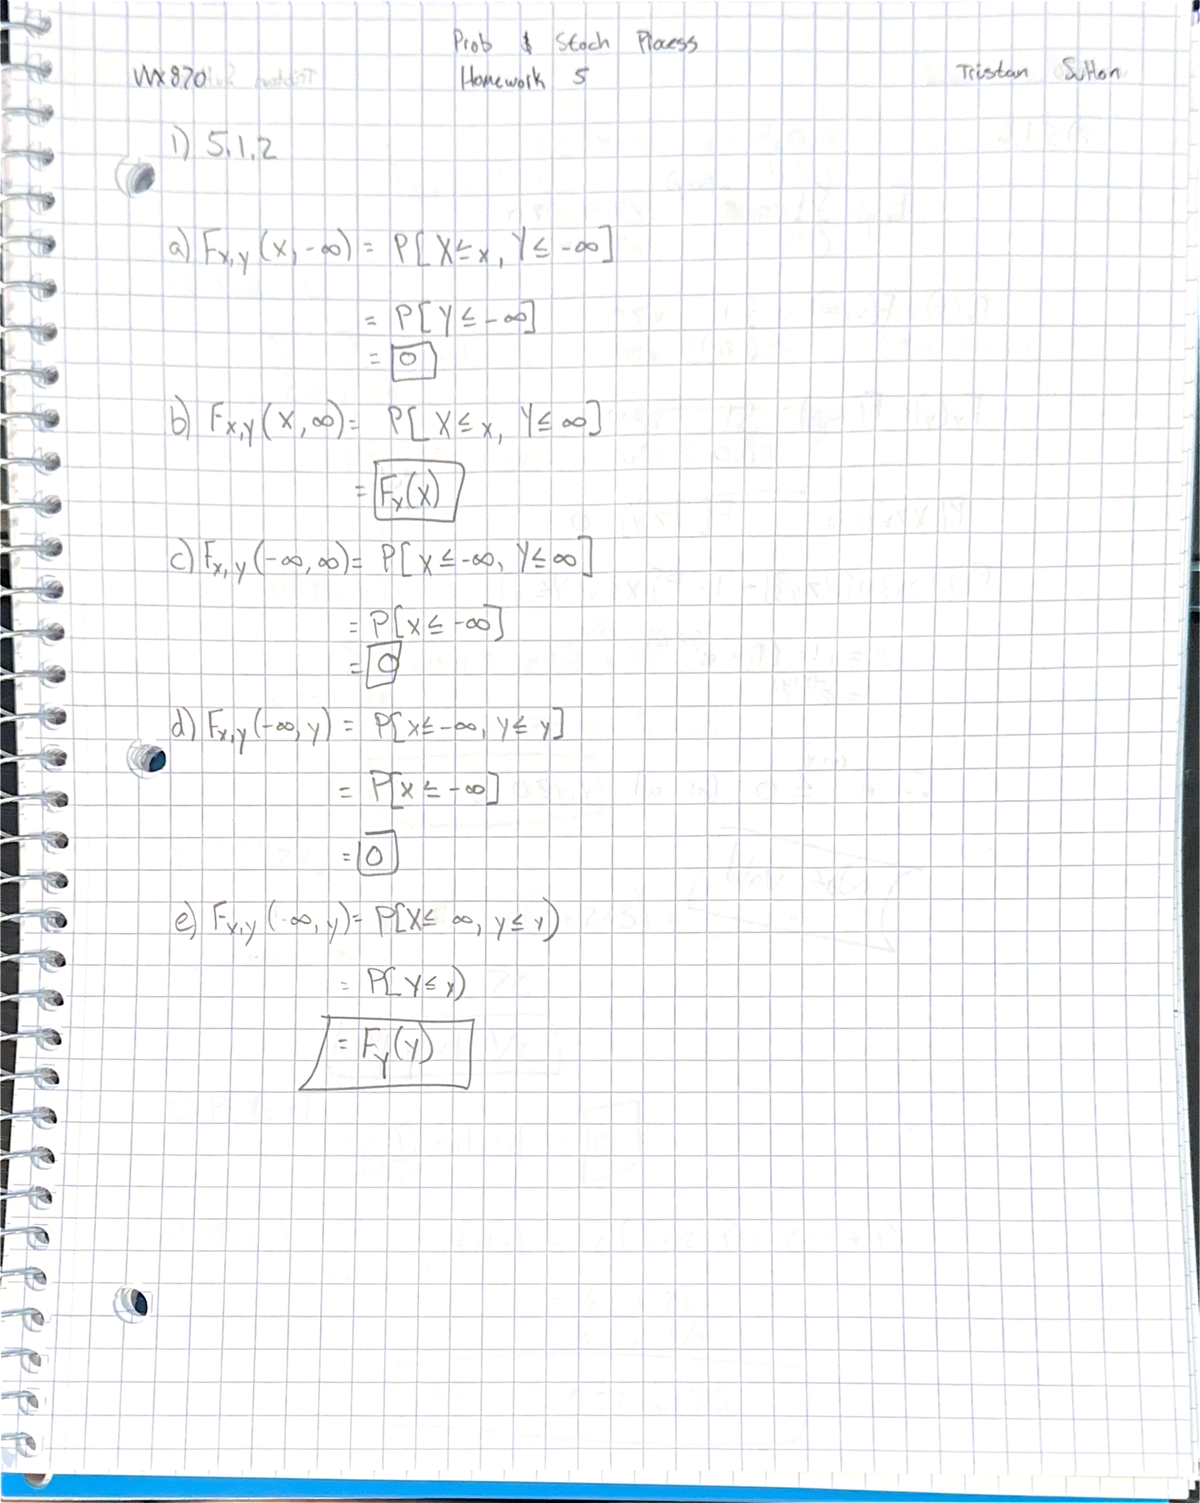 Prob & Stoch Process
WX870 Homework 5 Tristan Sutton
1) 5.1.2
a) F_{X,Y}(x,-∞) = P[X≤x, Y≤-∞]
= P[Y≤-∞]
= 0
b) F_{X,Y}(x,∞) = P[X≤x, Y≤∞]
= F_X(x)
c) F_{X,Y}(-∞,∞) = P[X≤-∞, Y≤∞]
= P[X≤-∞]
= 0
d) F_{X,Y}(-∞,y) = P[X≤-∞, Y≤y]
= P[X≤-∞]
= 0
e) F_{X,Y}(∞,y) = P[X≤∞, Y≤y)
= P[Y≤y)
= F_Y(y)